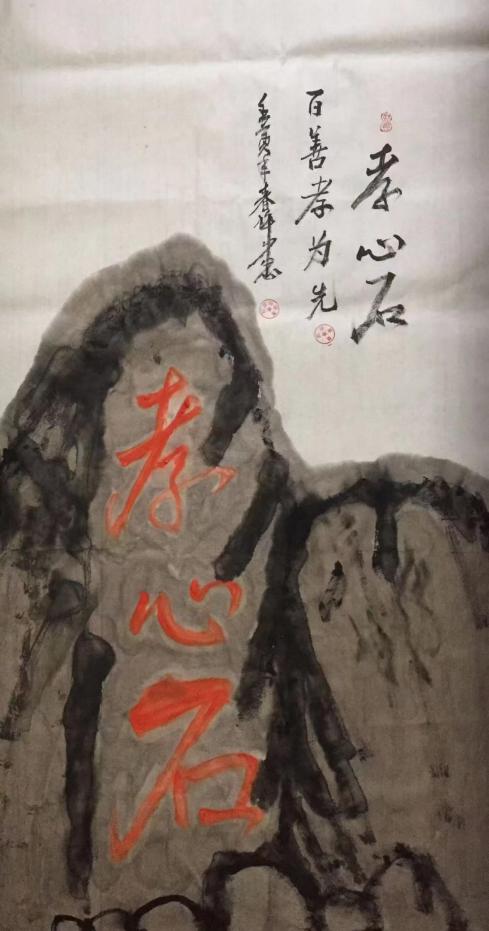 孝心石
百善孝为先
壬寅年春
孝心石